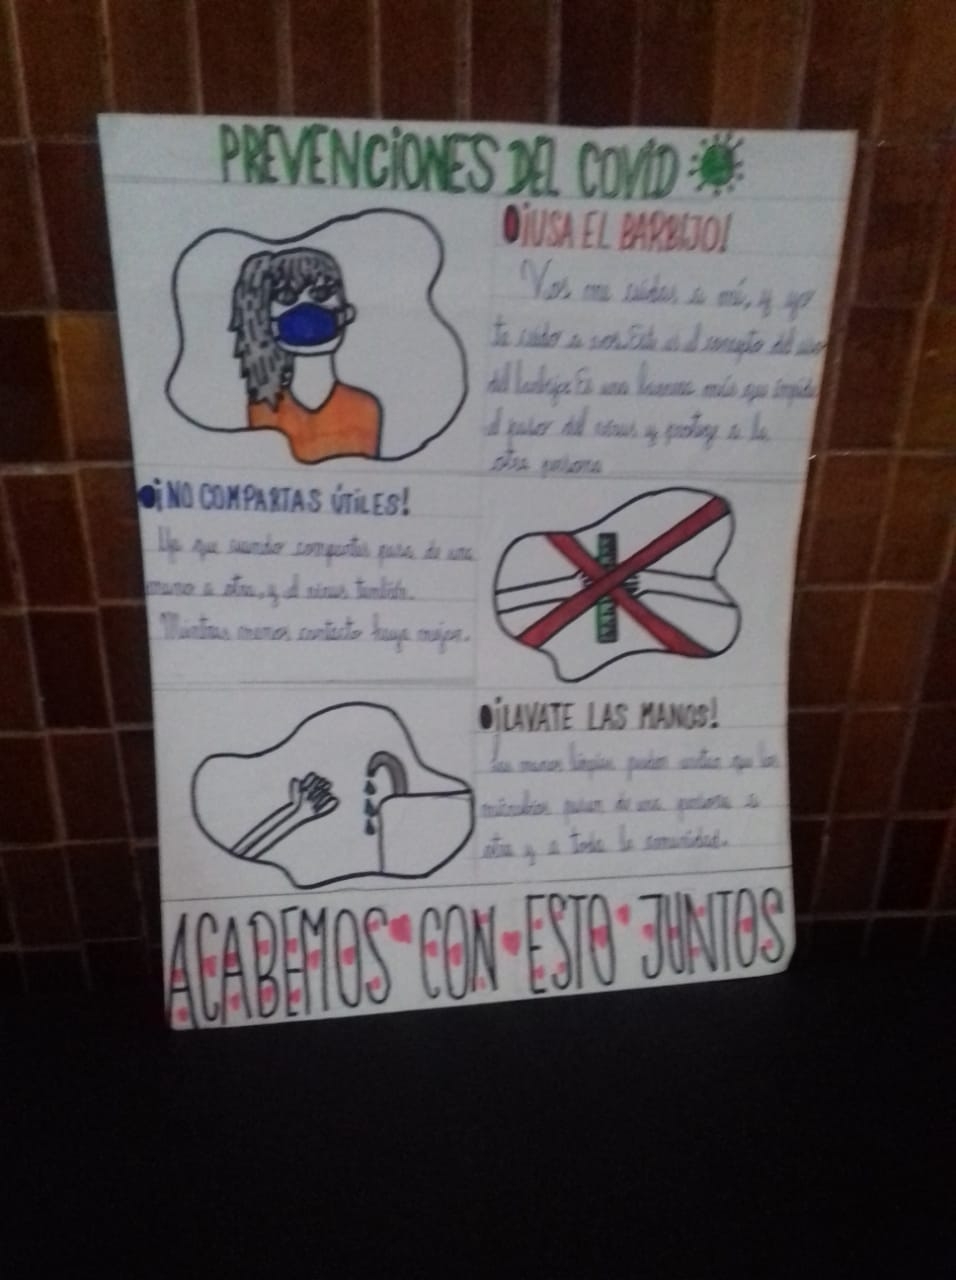 PREVENCIONES DEL COVID
¡USA EL BARBIJO!
Vos me cuidas a mí, y yo
te cuido a vos. Este es el concepto del uso
del barbijo. Es una barrera más que impide
el pasar del virus y protege a la
otra persona
¡NO COMPARTAS ÚTILES!
Ya que cuando compartes pasa de una
mano a otra, y el virus también.
Mientras menos contacto haya mejor.
¡LAVATE LAS MANOS!
Las manos limpias pueden evitar que los
microbios pasen de una persona a
otra y a toda la comunidad.
ACABEMOS CON ESTO JUNTOS